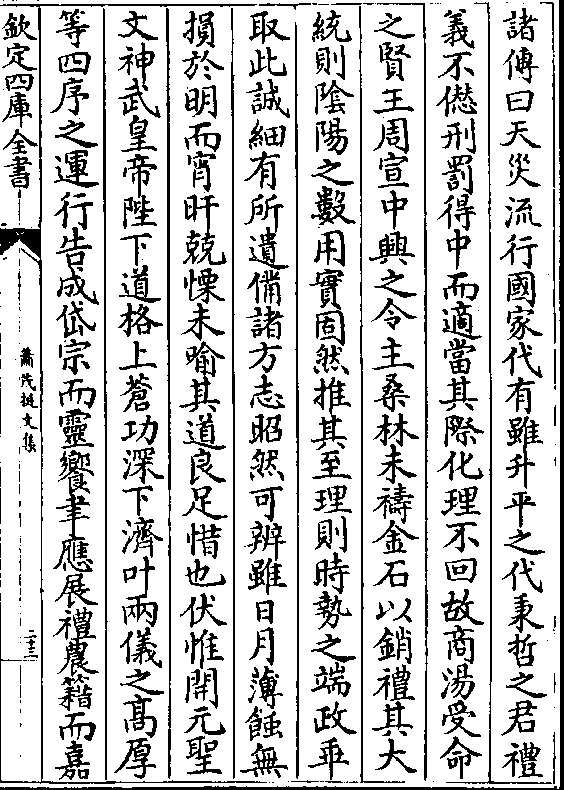 諸傳曰天災流行國家代有雖升平之代秉哲之君禮
義不愆刑罰得中而適當其際化理不回故商湯受命
之賢王周宣中興之令主桑林未禱金石以銷禮其大
統則陰陽之數用實固然推其至理則時勢之端政乖
取此誠細有所遺備諸方志昭然可辨雖日月薄蝕無
損於明而宵旰兢慄未喻其道良足惜也伏惟開元聖
文神武皇帝陛下道格上蒼功深下濟叶兩儀之髙厚
等四序之運行告成岱宗而靈饗聿應展禮農籍而嘉
欽定四庫全書
蕭茂挺文集
二十三